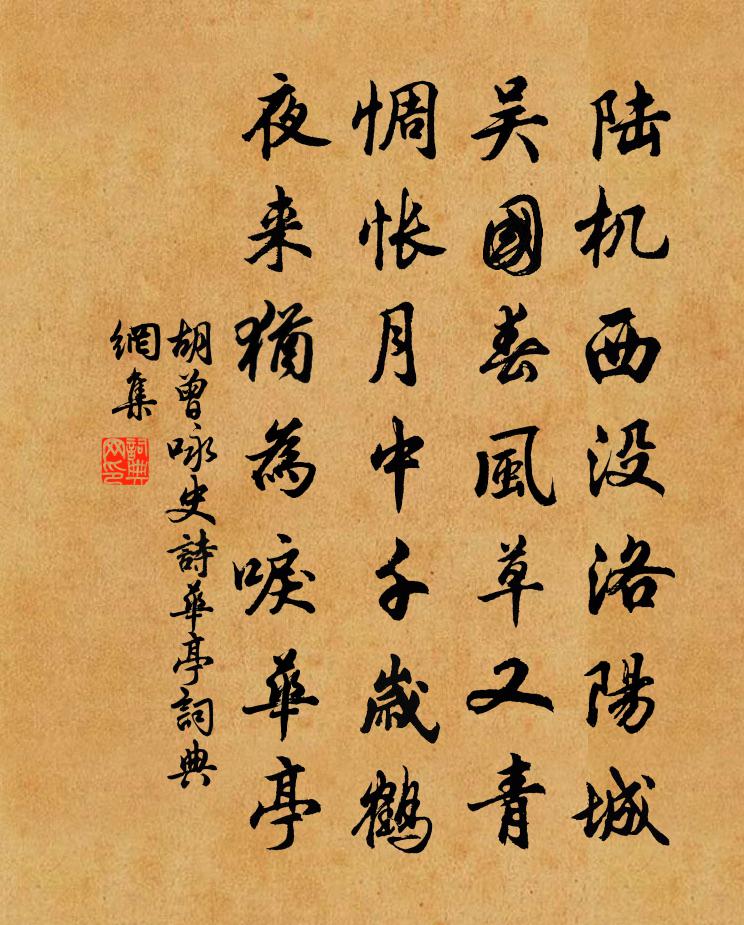 陆机西没洛阳城
吴國春風草又青
惆怅月中千歲鶴
夜来猶為唳華亭
胡曾咏史詩華亭詞典
網集
詞典
网印